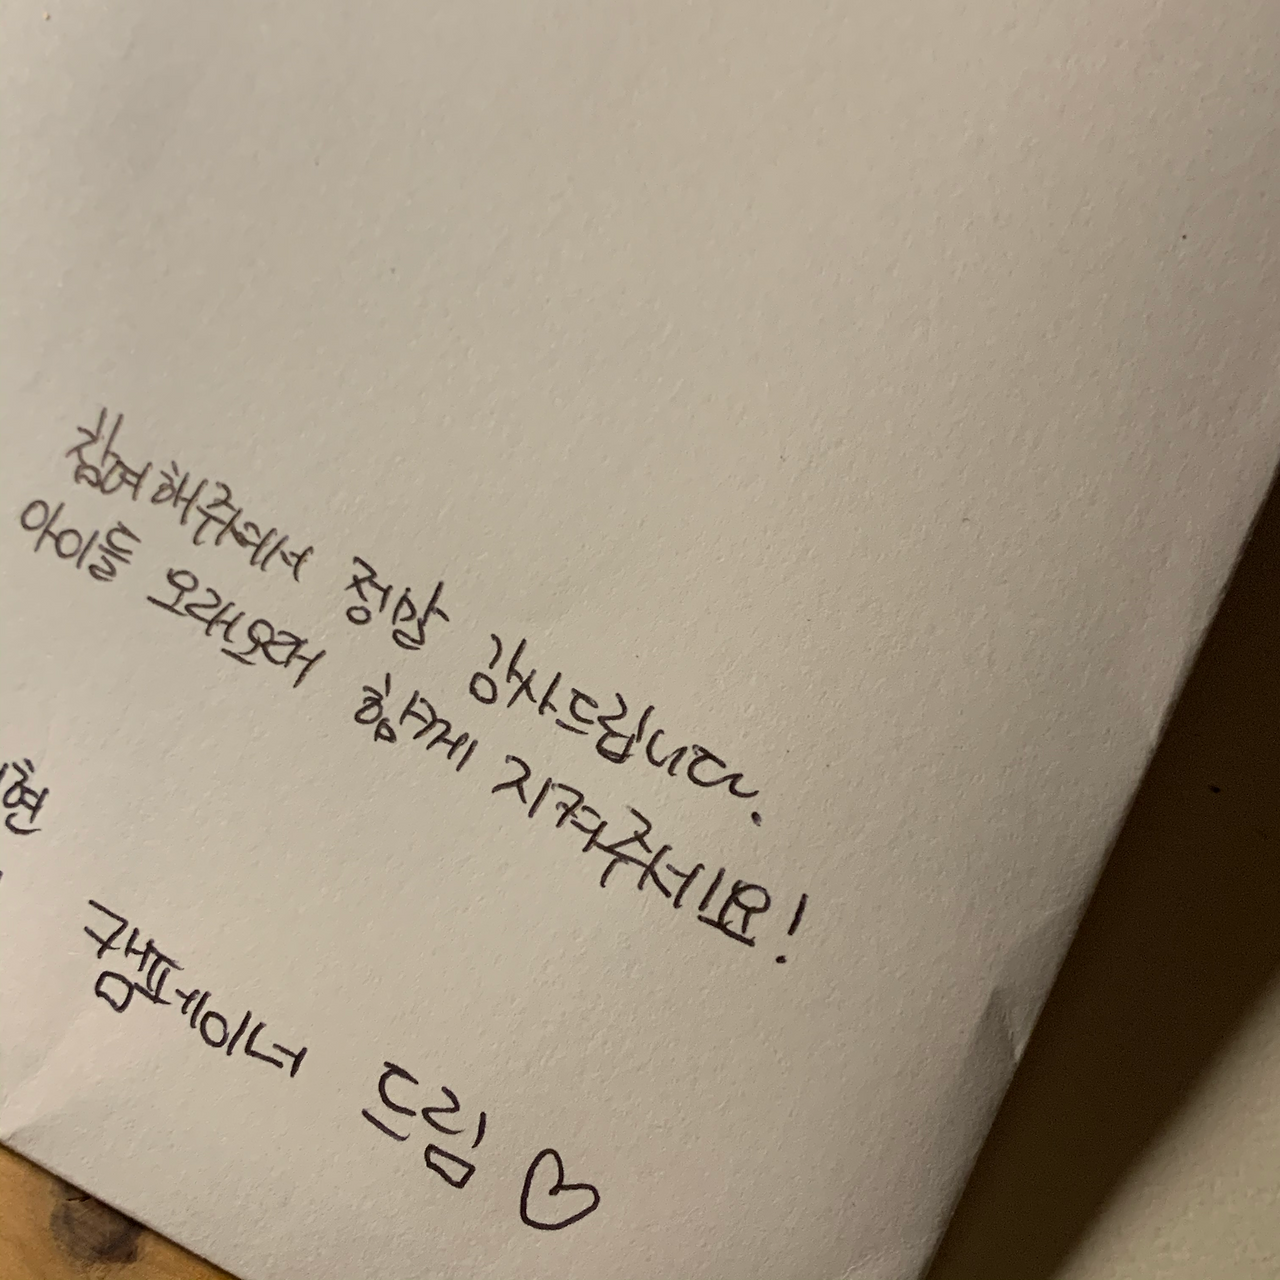 참여해주셔서 정말 감사드립니다.
아이들 오래오래 함께 지켜주세요!
현
캠페이너 드림♡